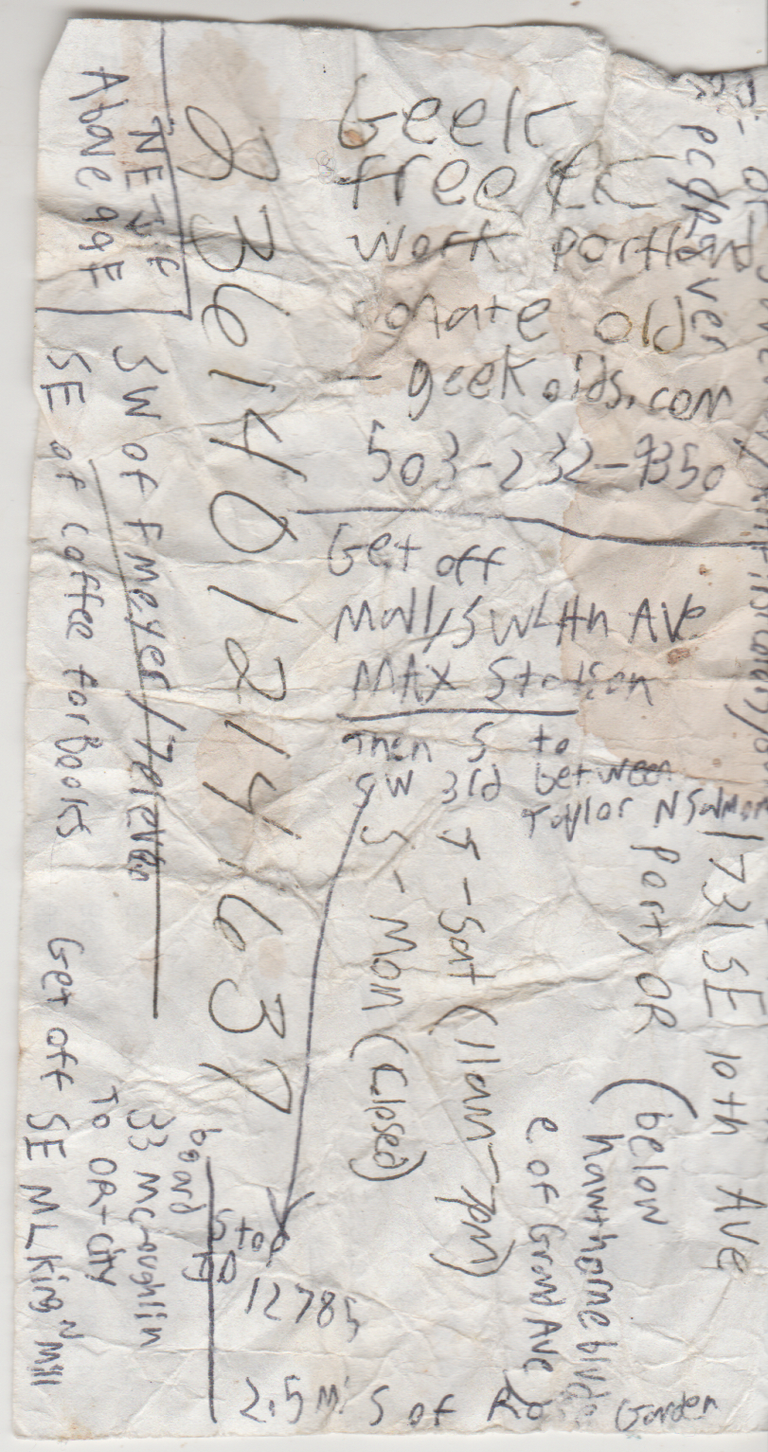 Geek
free
work portland
donate old
- geekoids.com
503-232-9350
Get off
Mall/SW 4th Ave
MAX Station
Then S to
SW 3rd between
Taylor N Salmon
Stop
ID
12785
2.5 mi S of
Garden
NE
Above 99E
2361401214.637
SW of Fmeyer / 7eleven
SE of coffee for books
1731 SE 10th Ave
Port, OR (below
hawthorne blvd
e of Grand Ave
T - Sat (11am - 7pm)
S - Mon (Closed)
board
33 Mcloughlin
TO OR-city
Get off SE ML king N Mill